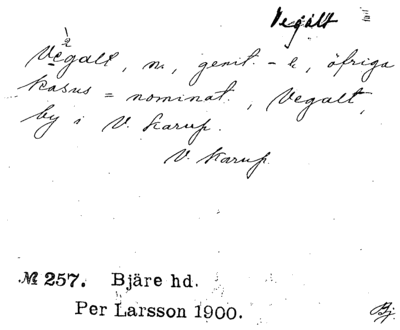 Vegalt
Vegalt, m, genit. - e, öfriga
kasus = nominat., Vegalt,
by i V. Karup.
V. Karup.
№ 257. Bjäre hd.
Per Larsson 1900.
Bj.